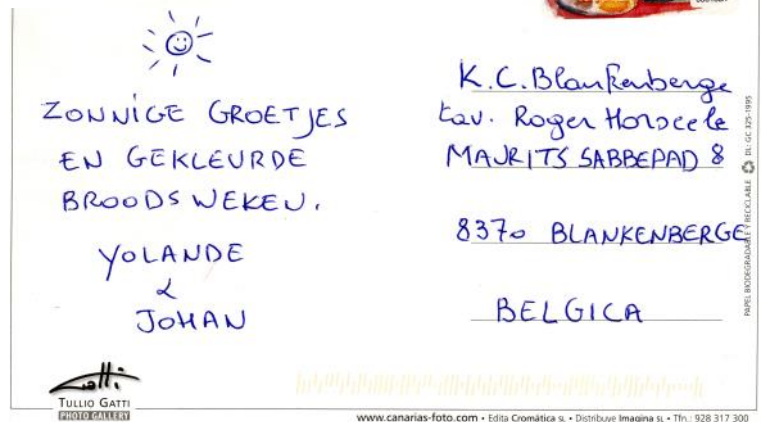 ZONNIGE GROETJES
EN GEKLEURDE
BROODS WEKEN.
YOLANDE
&
JOHAN
K.C. Blankenberge
t.a.v. Roger
MAURITS SABBEPAD 8
8370 BLANKENBERGE
BELGICA
PAPEL BIODEGRADABLE Y RECICLABLE DL: GC 325-1995
Gatti
TULLIO GATTI
PHOTO GALLERY
www.canarias-foto.com • Edita Cromática SL • Distribuye Imagina SL • Tfn.: 928 317 300